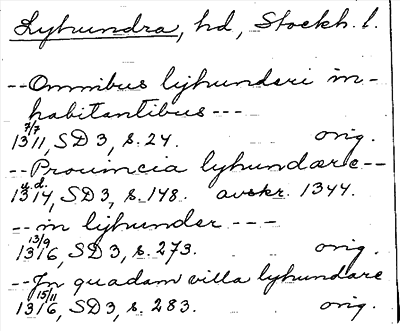 Lyhundra, hd, Stockh. l.
-- Omnibus lijhunderi in-
habitantibus ---
7/7
1311, SD 3, s. 24. orig.
-- Prouincia lyhundære --
u.d.
1314, SD 3, s. 148. avskr. 1344.
-- in lijhunder ---
13/9
1316, SD 3, s. 273. orig.
-- Jn quadam villa lyhundare
15/11
1316, SD 3, s. 283. orig.